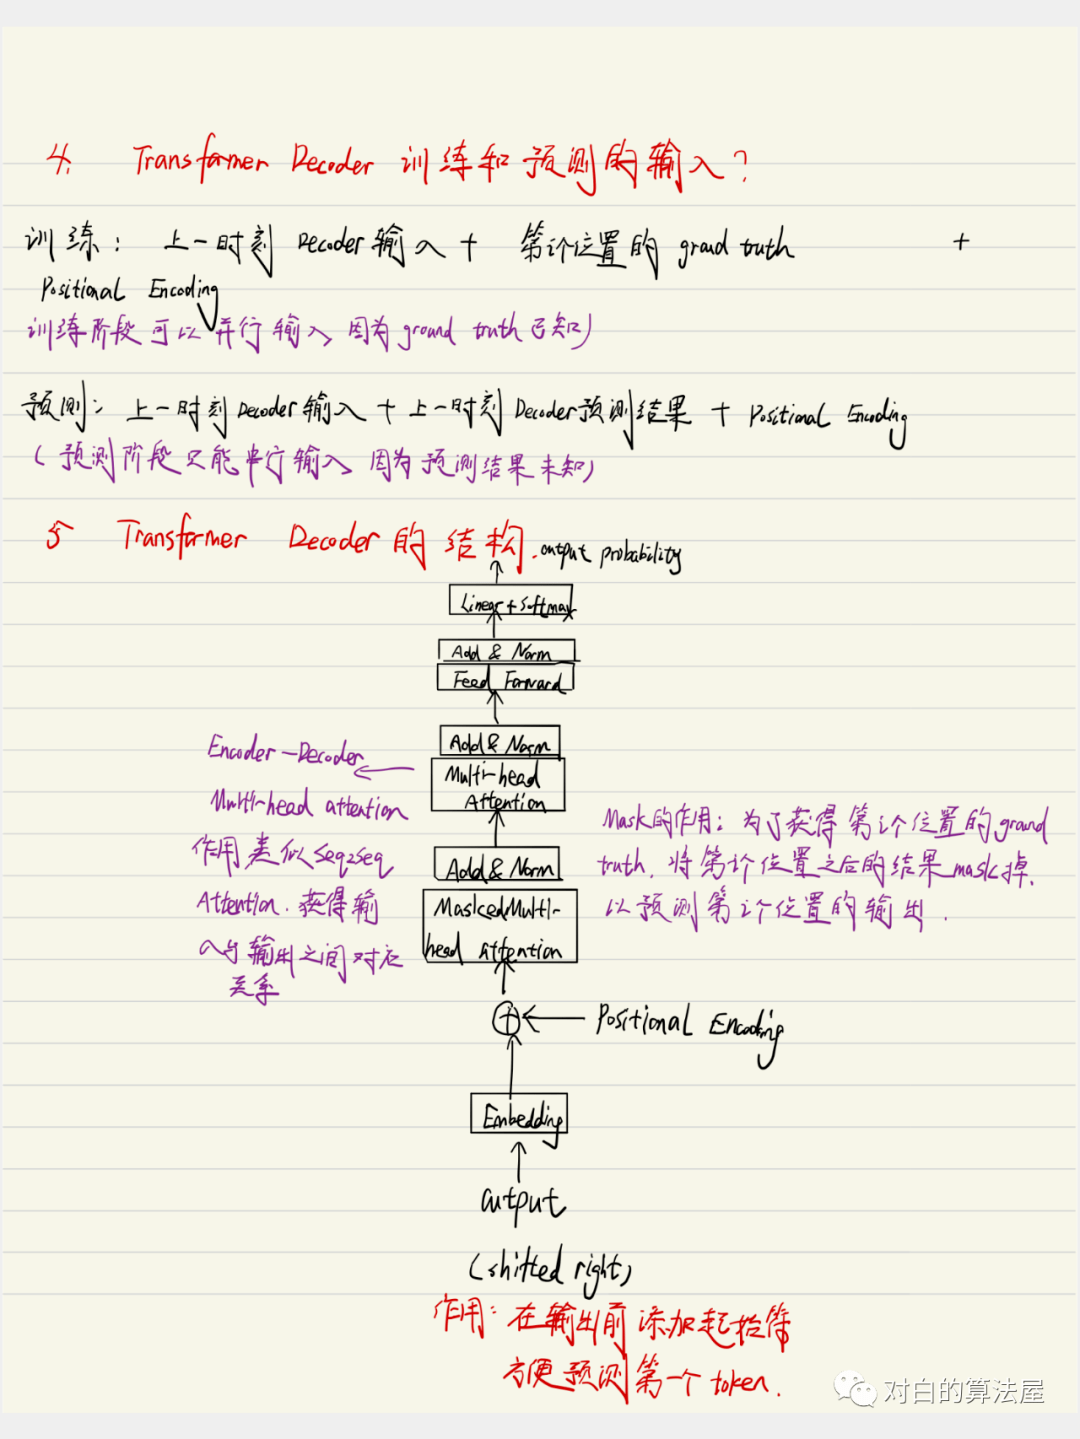 4. Transformer Decoder 训练和预测的输入?
训练: 上一时刻 Decoder 输入 + 第i个位置的 ground truth +
Positional Encoding
训练阶段可以并行输入, 因为 ground truth 已知)
预测: 上一时刻 Decoder 输入 + 上一时刻 Decoder 预测结果 + Positional Encoding
(预测阶段只能串行输入, 因为预测结果未知)
5 Transformer Decoder 的结构.
output probability
Linear + Softmax
Add & Norm
Feed Forward
Add & Norm
Multi-head
Attention
Add & Norm
Masked Multi-
head attention
Positional Encoding
Embedding
output
(shifted right)
Encoder-Decoder
Multi-head attention
作用类似 seq2seq
Attention. 获得输
入与输出之间对应
关系
Mask的作用: 为了获得第i个位置的 ground
truth, 将第i个位置之后的结果 mask 掉,
以预测第i个位置的输出.
作用: 在输出前添加起始符
方便预测第一个 token.
对白的算法屋